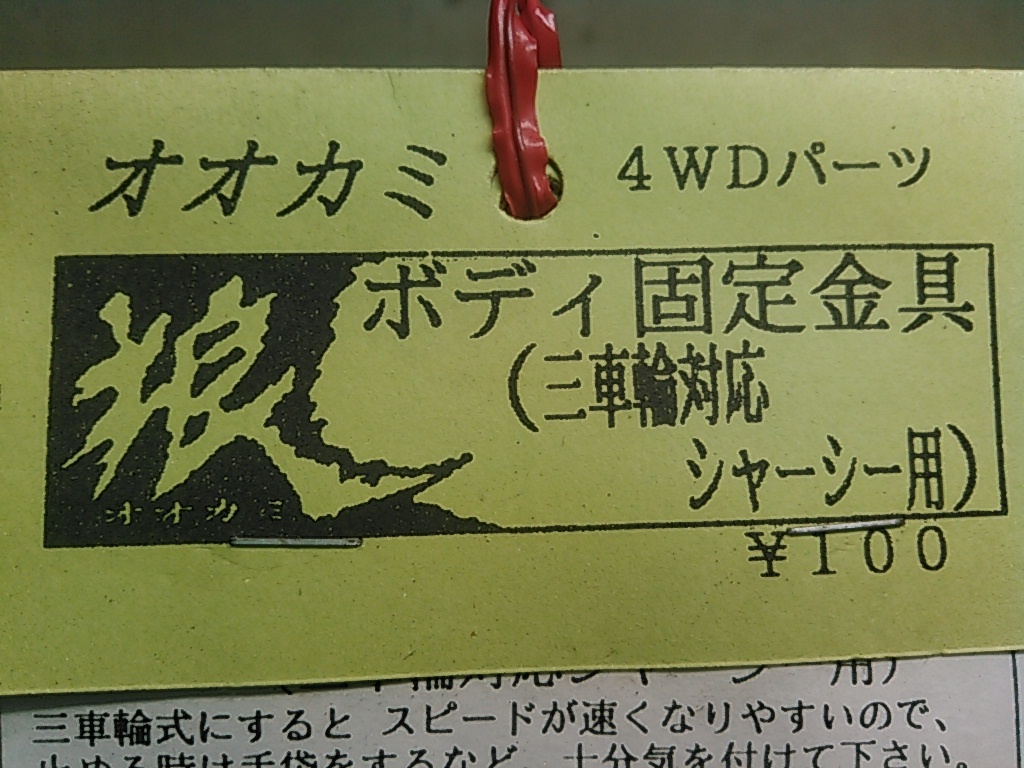 オオカミ
4WDパーツ
狼
オオカミ
ボディ固定金具
(三車輪対応
シャーシー用)
¥100
三車輪式にすると スピードが速くなりやすいので、
止める時は手袋をするなど、十分気を付けて下さい。